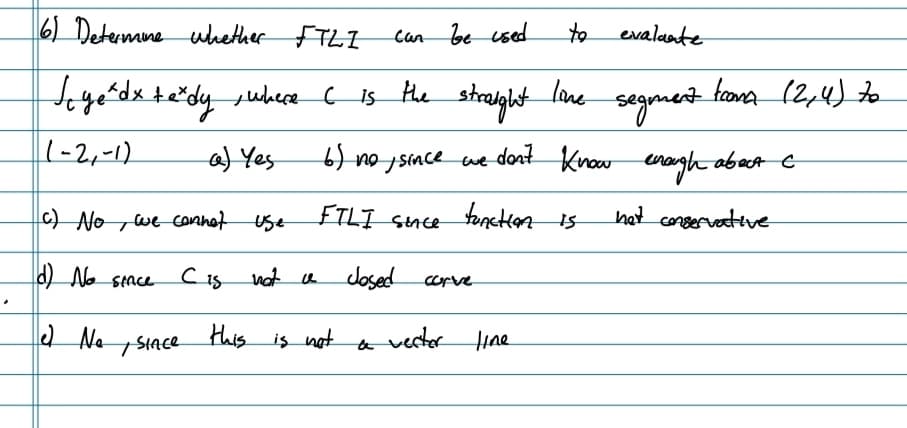 6) Determine whether FTLI can be used to evaluate
∫c yeˣdx + eˣdy , where C is the straight line segment from (2,4) to
(-2,-1) a) Yes b) no , since we don't know enough about C
c) No , we cannot use FTLI since function is not conservative
d) No since C is not a closed curve
e) No , since this is not a vector line